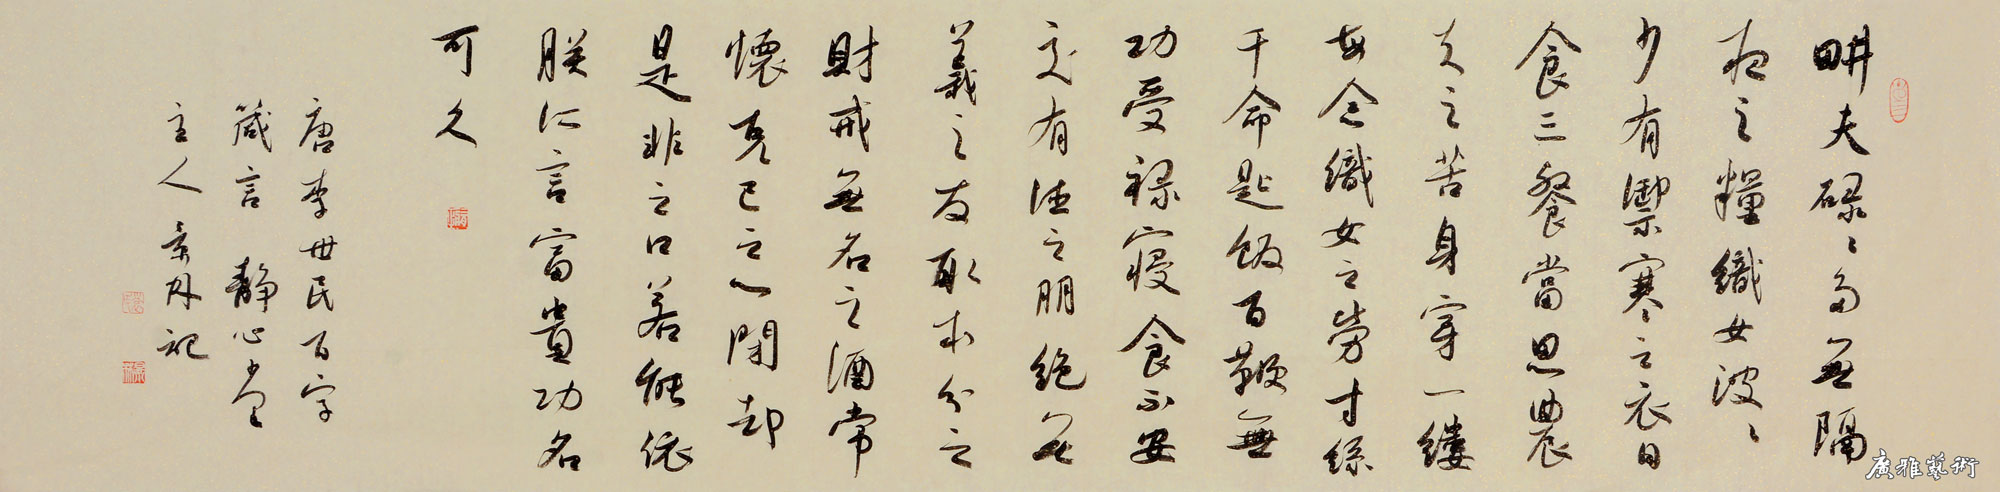 耕夫碌々多無隔
夜之糧織女波々
少有禦寒之衣日
食三餐當思農
夫之苦身穿一縷
每念織女之勞寸絲
千命匙飯百鞭無
功受祿寢食不安
交有德之朋絕無
義之友取本分之
財戒無名之酒常
懷克己之心閉却
是非之口若能依
朕所言富貴功名
可久
唐李世民百字
箴言 靜心堂
主人 記
廣雅藝術